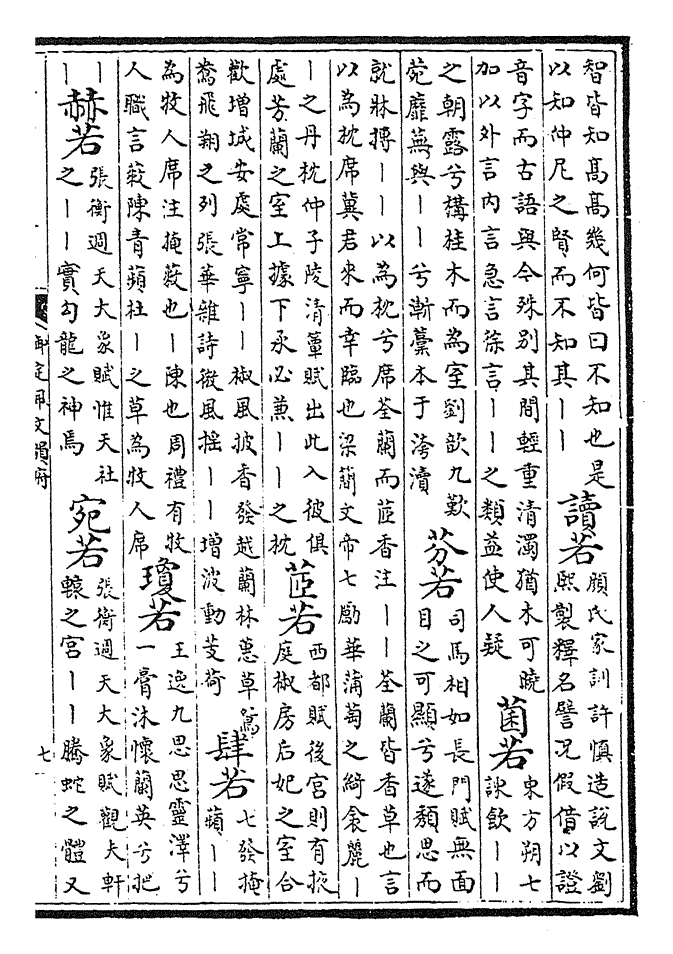 智皆知髙髙幾何皆曰不知也是
以知仲尼之賢而不知其丨丨
讀若
顔氏家訓許慎造說文劉
熙製釋名譬况假借以證
音字而古語與今殊别其間輕重清濁猶未可曉
加以外言内言急言徐言丨丨之類益使人疑
菌若
東方朔七
諌飲丨丨
之朝露兮構桂木而為室劉歆九歎
菀蘼蕪與丨丨兮漸藁本于洿瀆
芬若
司馬相如長門賦無面
目之可顯兮遂頽思而
就牀摶丨丨以為枕兮席荃蘭而茝香注丨丨荃蘭皆香草也言
以為枕席冀君來而幸臨也梁簡文帝七勵華蒲萄之綺衾麗丨
丨之丹枕仲子陵清簟賦出此入彼俱
處芳蘭之室上據下承必兼丨丨之枕
茝若
西都賦後宫則有掖
庭椒房后妃之室合
歡增城安處常寧丨丨椒風披香發越蘭林蕙草鴛
鸞飛翔之列張華雜詩微風揺丨丨增波動芰荷
肆若
七發掩
蘋丨丨
為牧人席注掩蔽也丨陳也周禮有牧
人職言蔽陳青蘋杜丨之草為牧人席
瓊若
王逸九思思靈澤兮
一膏沐懷蘭英兮把
丨
丨
赫若
張衡週天大象賦惟天社
之丨丨實勾龍之神焉
宛若
張衡週天大象賦觀夫軒
轅之宫丨丨騰蛇之體又
御定佩文韻府
七